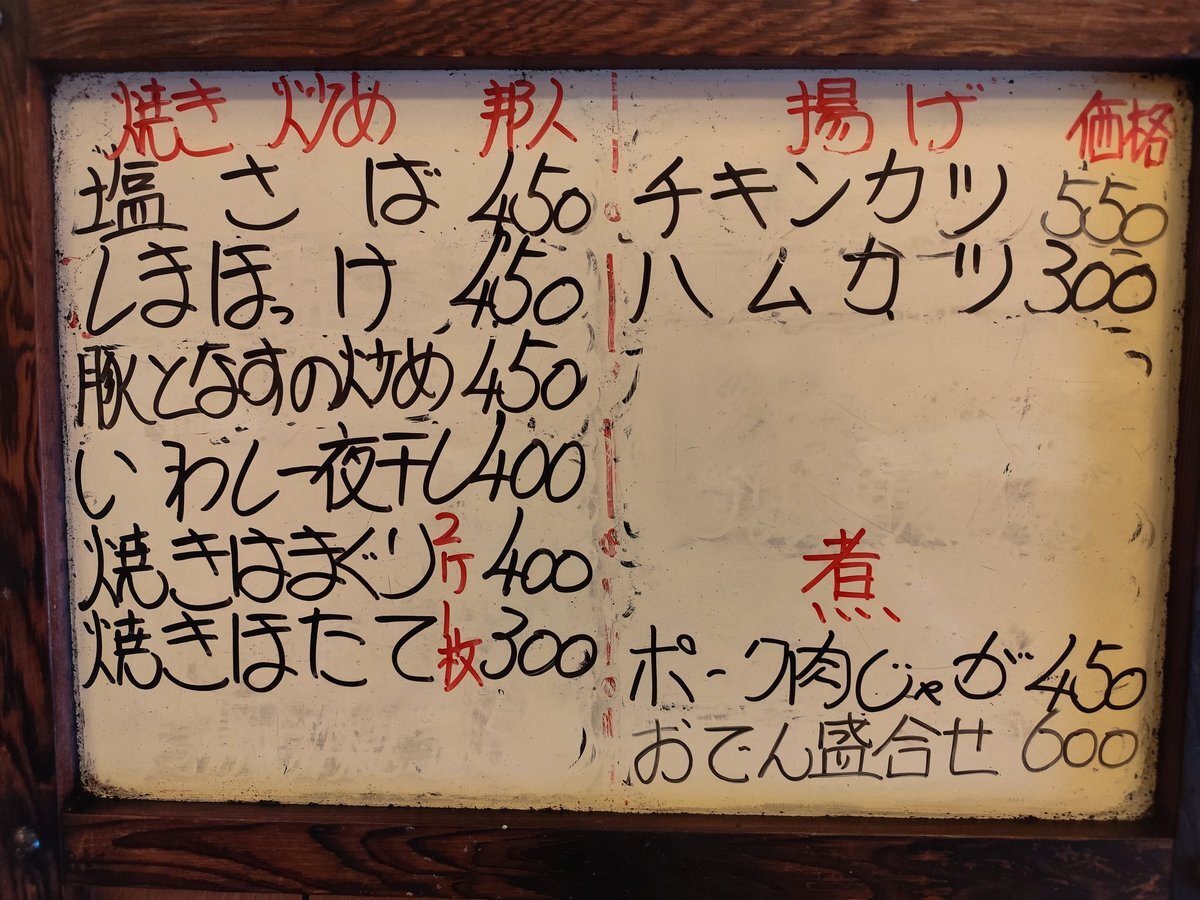 焼き 炒め 邦人
塩さば 450
しまほっけ 450
豚となすの炒め 450
いわし一夜干し 400
焼きはまぐり 2ケ 400
焼きほたて 1枚 300
揚げ 価格
チキンカツ 550
ハムカツ 300
煮
ポーク肉じゃが 450
おでん盛合せ 600